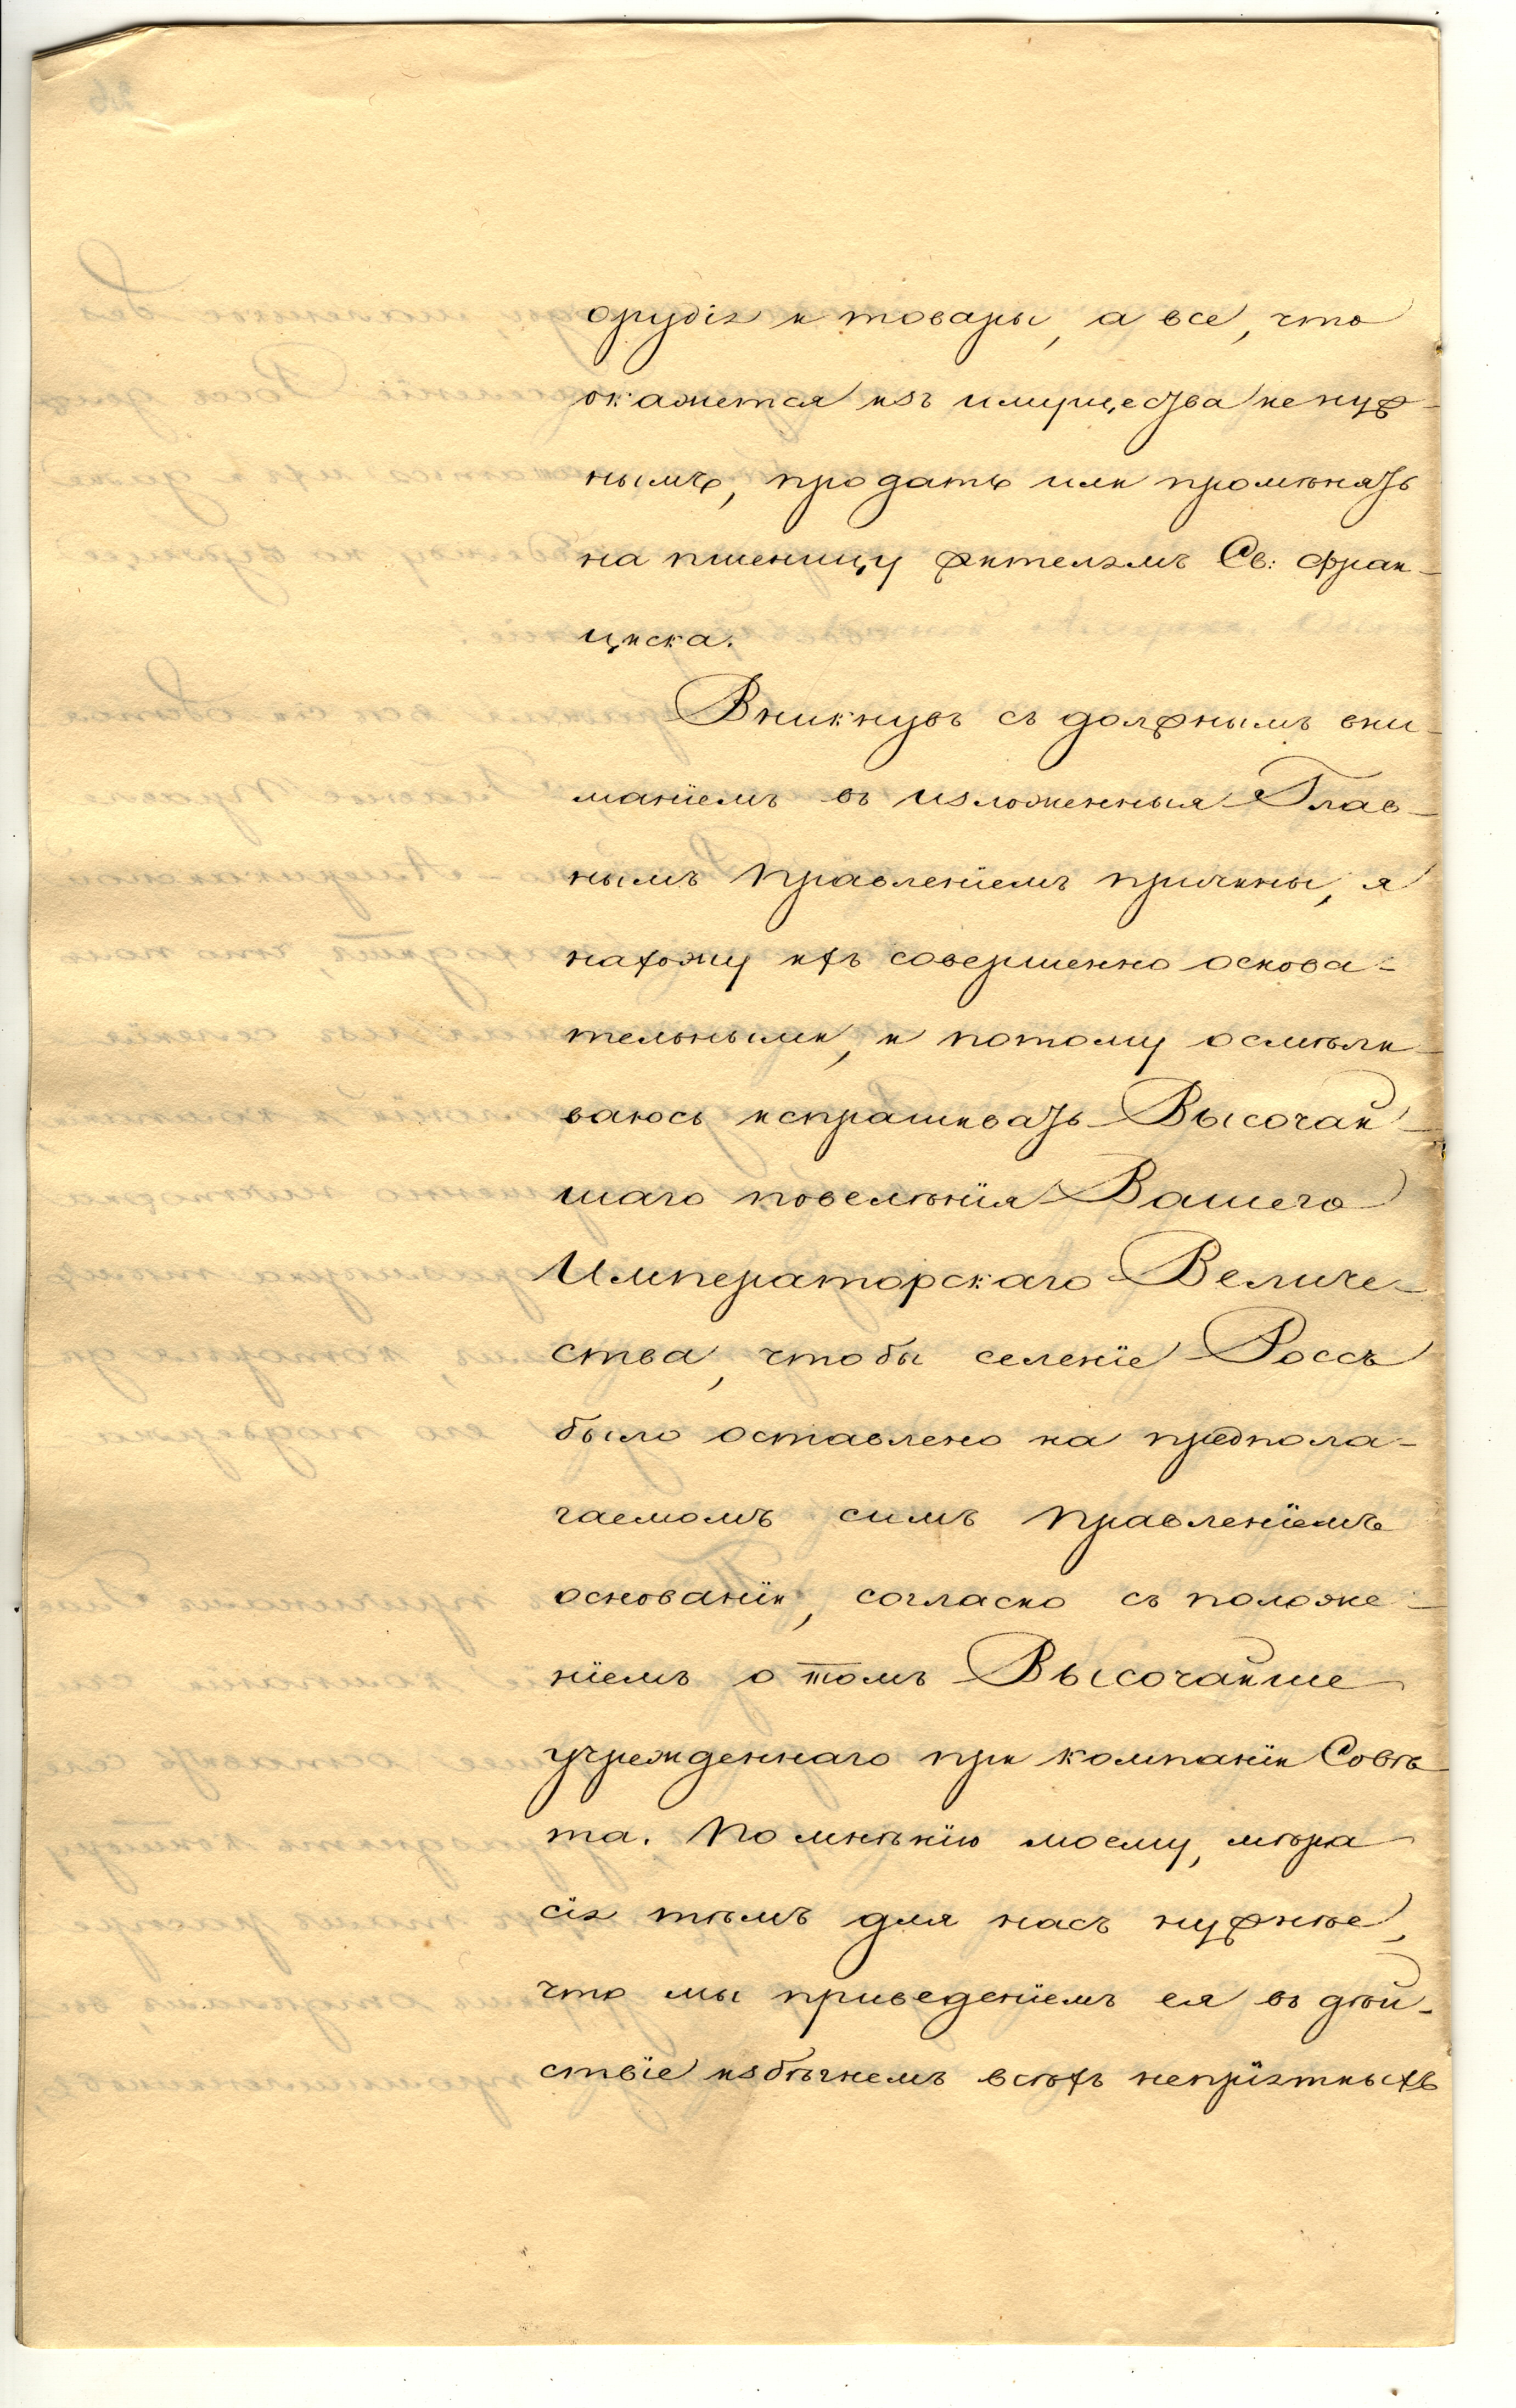 орудія и товары, а все, что
окажется изъ имущества ненуж-
нымъ, продать или промѣнять
на пшеницу жителямъ Св: Фран-
циска.
Вникнувъ съ должнымъ вни-
маніемъ въ изложенныя Глав-
нымъ Правленіемъ причины, я
нахожу ихъ совершенно основа-
тельными, и потому осмѣли-
ваюсь испрашивать Высочай-
шаго повелѣнія Вашего
Императорскаго Величе-
ства, чтобы селеніе Россъ
было оставлено на предпола-
гаемомъ симъ Правленіемъ
основаніи, согласно съ положе-
ніемъ о томъ Высочайше
учрежденнаго при компаніи Совѣ-
та. По мнѣнію моему, мѣра
сія тѣмъ для насъ нужнѣе,
что мы приведеніемъ ея въ дѣй-
ствіе избѣгнемъ всѣхъ непріятныхъ